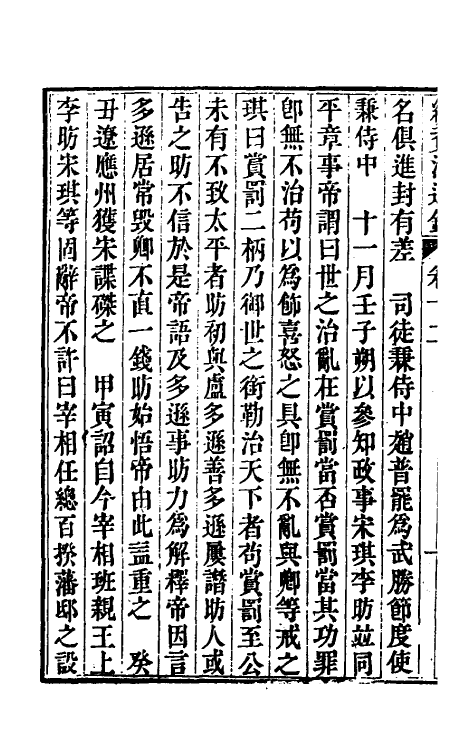 名俱進封有差　司徒兼侍中趙普罷爲武勝節度使
兼侍中　十一月壬子朔以參知政事宋琪李昉竝同
平章事帝謂曰世之治亂在賞罰當否賞罰當其功罪
卽無不治苟以爲飾喜怒之具卽無不亂與卿等戒之
琪曰賞罰二柄乃御世之銜勒治天下者苟賞罰至公
未有不致太平者昉初與盧多遜善多遜屢譖昉人或
吿之昉不信於是帝語及多遜事昉力爲解釋帝因言
多遜居常毀卿不直一錢昉始悟帝由此益重之　癸
丑遼應州獲宋諜磔之　甲寅詔自今宰相班親王上
李昉宋琪等固辭帝不許曰宰相任總百揆藩邸之設